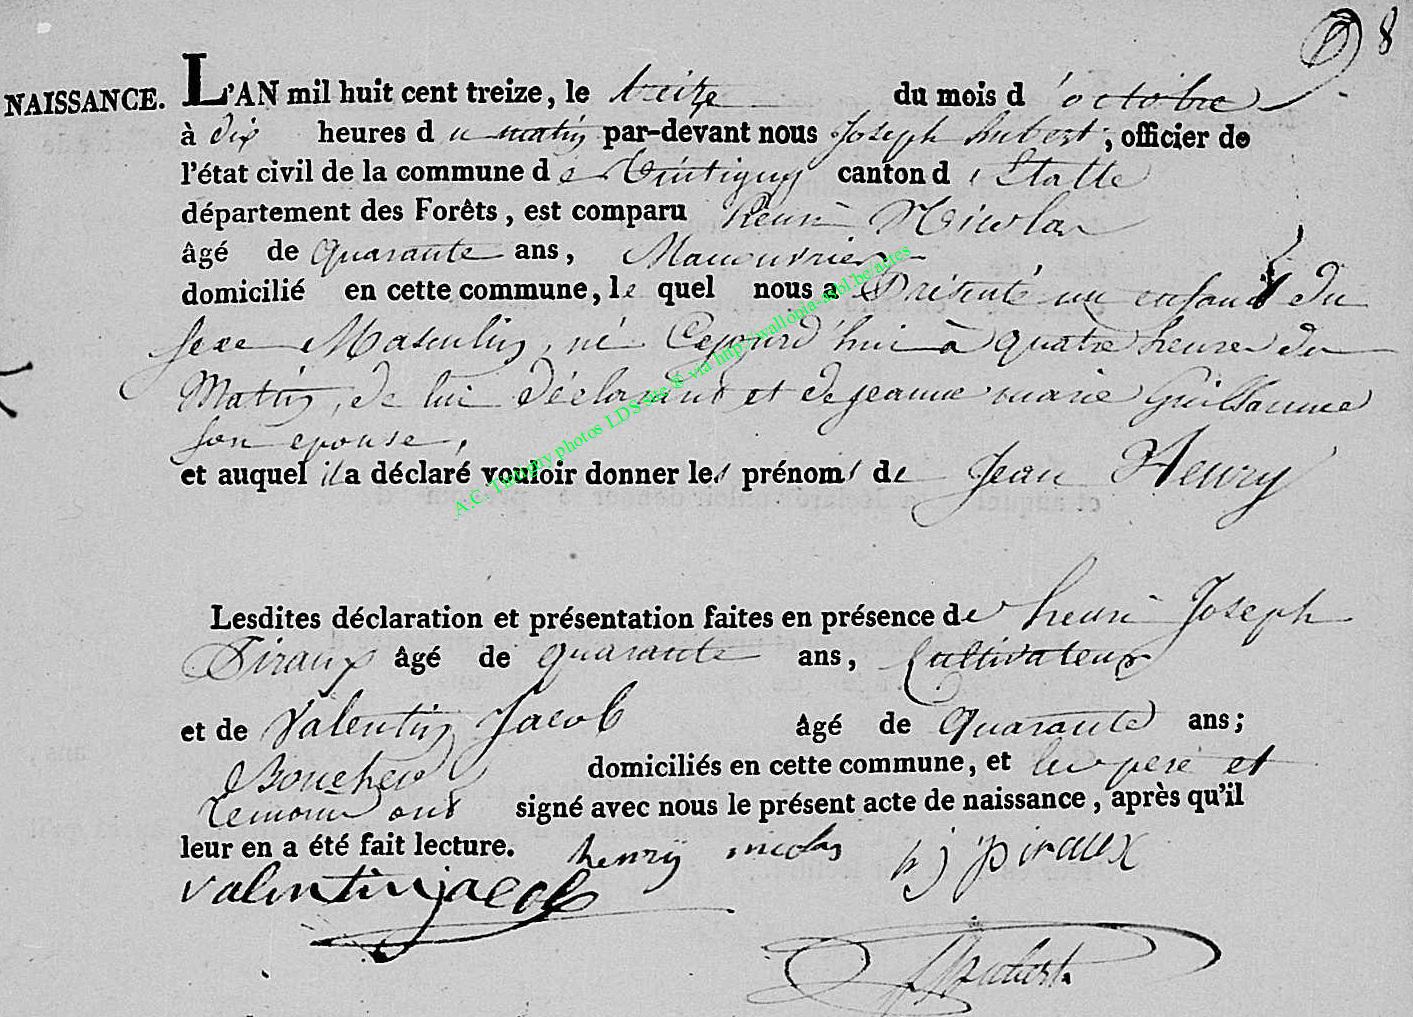 8
NAISSANCE. L'AN mil huit cent treize, le treize du mois d'octobre
à dix heures du matin par-devant nous Joseph hubert, officier de
l'état civil de la commune de Tintigny canton d'Etalle
département des Forêts, est comparu henri Nicolas
âgé de Quarante ans, Manouvrier
domicilié en cette commune, le quel nous a Présenté un enfant du
sexe Masculin, né Cejourd'hui à quatre heures du
Matin, de lui déclarant et de jeanne marie Guillaume
son epouse,
et auquel il a déclaré vouloir donner les prénoms de Jean Henry
Lesdites déclaration et présentation faites en présence de henri Joseph
Piraux âgé de quarante ans, Cultivateur
et de Valentin Jacob âgé de Quarante ans;
Boucher domiciliés en cette commune, et les pere et
temoins ont signé avec nous le présent acte de naissance, après qu'il
leur en a été fait lecture. henrÿ nicolas h j piraux
valentin jacob
J hubert
A.C. Tintigny photos LDS sts © via http://wallonia-asbl.be/actes